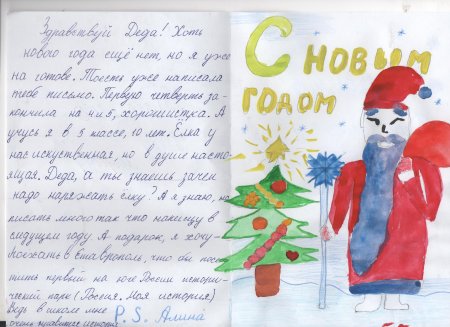 Здравствуй Деда! Хоть
нового года ещё нет, но я уже
на готове. Тоесть уже написала
тебе письмо. Первую четверть за-
кончила на 4 и 5, хорошистка. А
учусь я в 5 классе, 10 лет. Ёлка у
нас искуственная, но в душе насто-
ящая. Деда, а ты знаешь зачем
надо наряжать ёлку? А я знаю, но
писать много так что напишу в
следущем году. А подарок, я хочу
поехать в Ставрополь, что бы посе-
тить первый на юге России истори-
ческий парк (Россия. Моя история)
Ведь в школе мне
очень нравится история.
P.S. Алина
С новым
годом